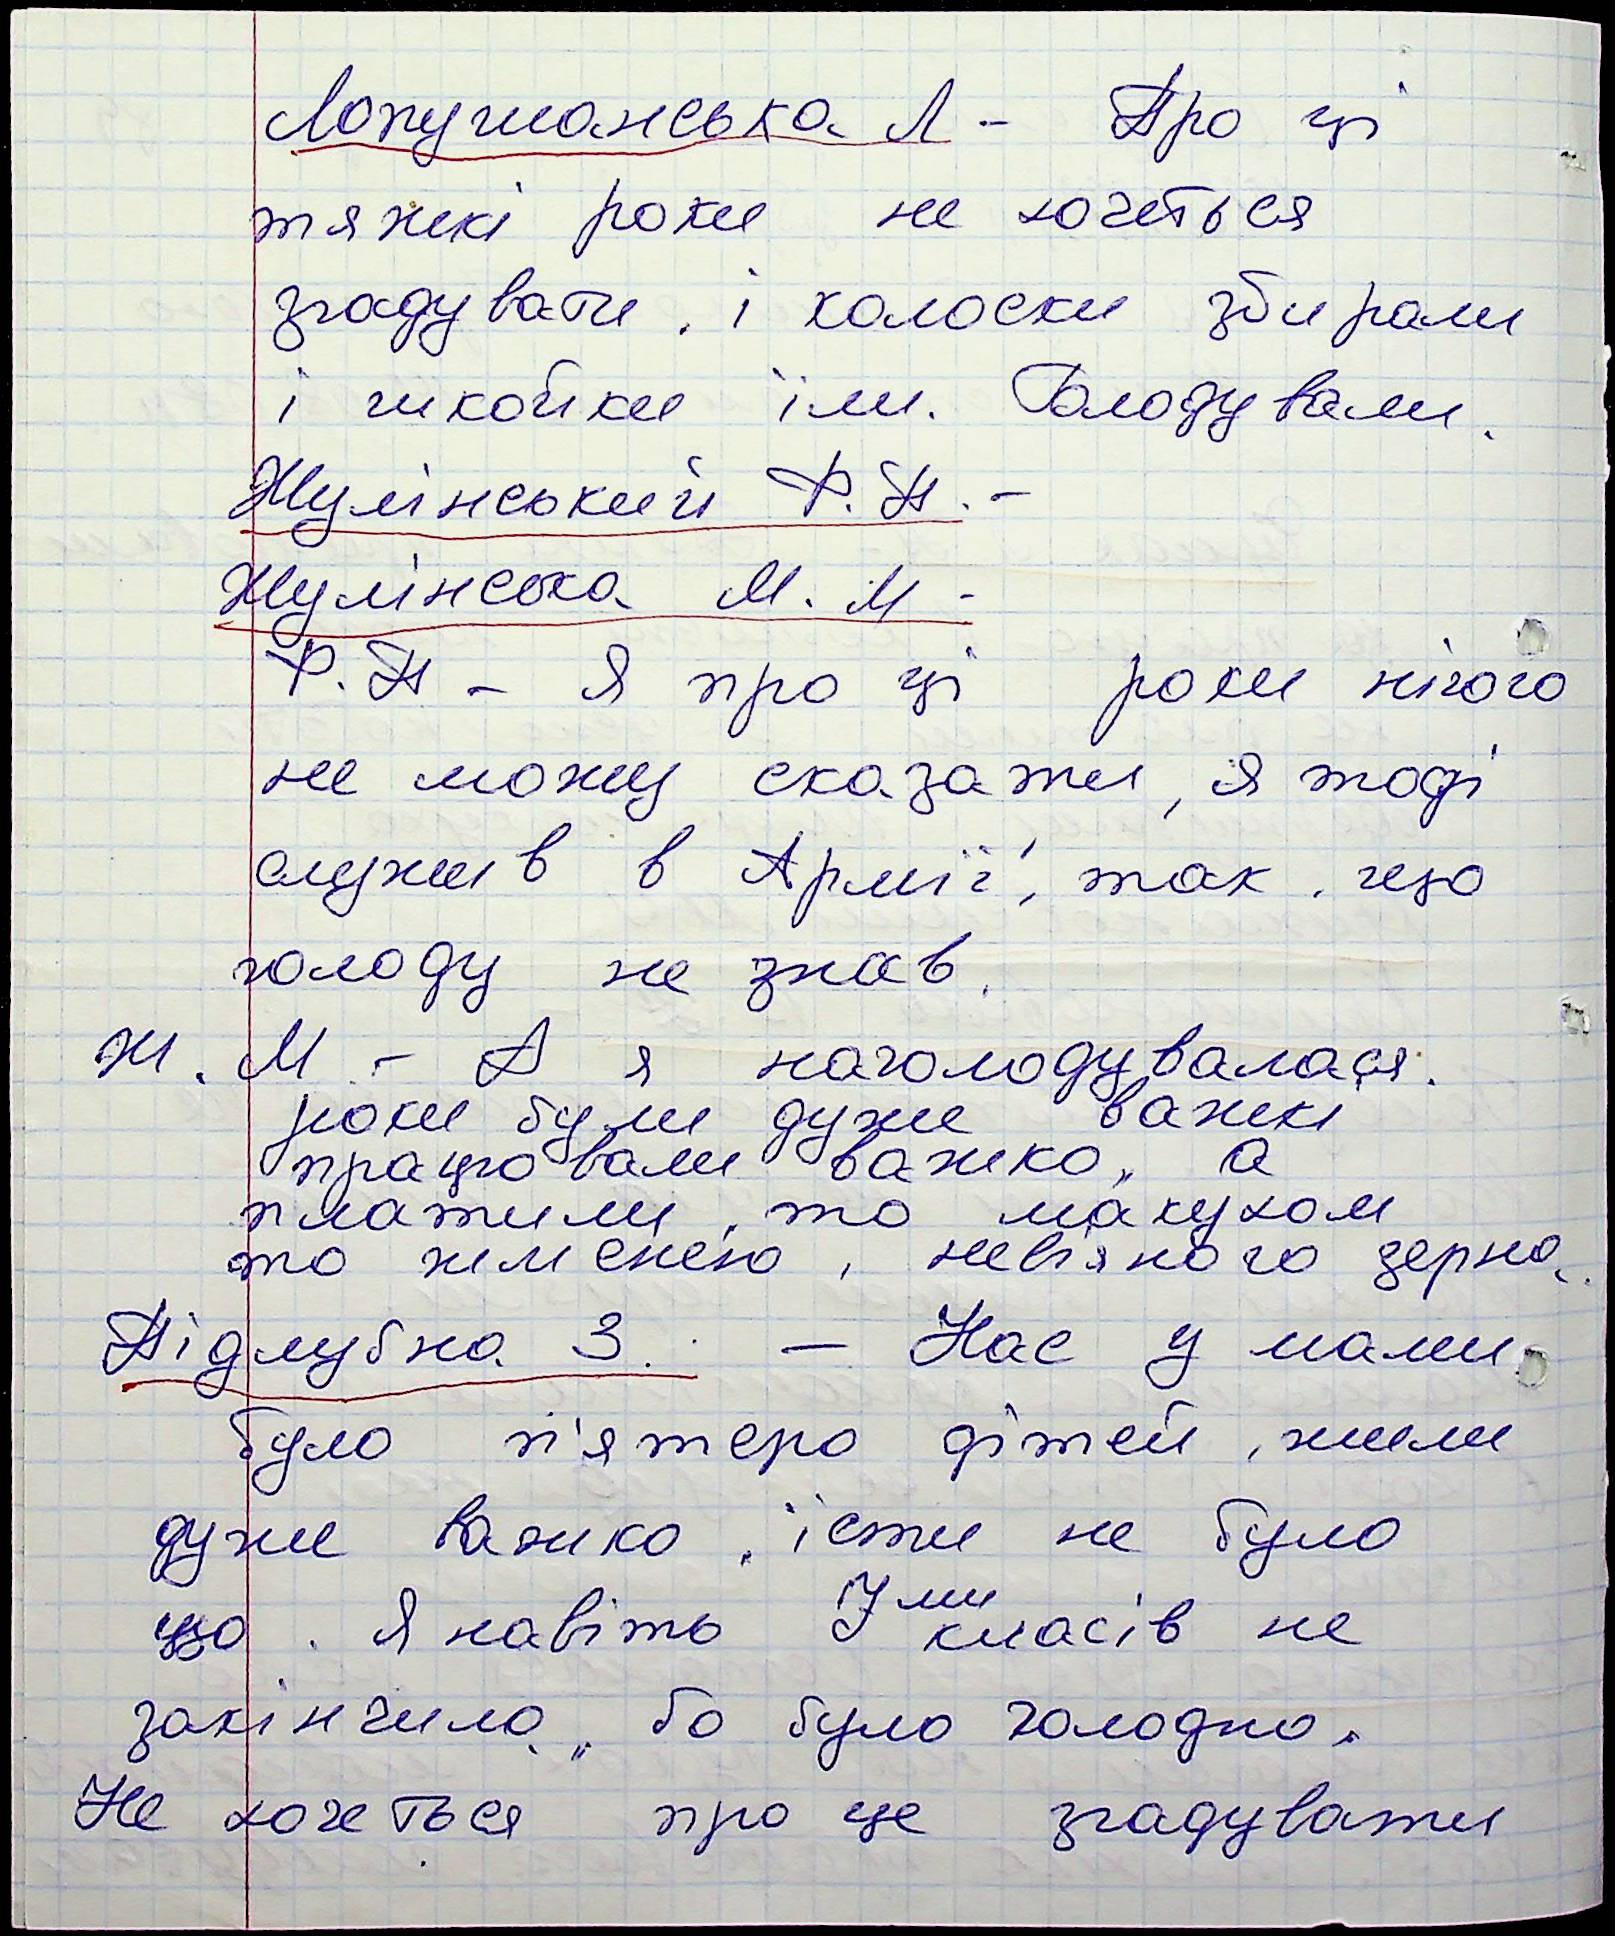 Лопушанська Л - Про ці
тяжкі роки не хочеться
згадувати, і колоски збирали
і чикойки їли. Голодували.
Жулінський Ф.Н. -
Жулінська М. М -
Ф.Н - Я про ці роки нічого
не можу сказати, я тоді
служив в Армії, так, що
голоду не знав.
Ж. М - А я наголодувалася.
роки були дуже важкі
працювали важко, а
платили, то макухом
то жменею, невіяного зерна.
Підлубна З. - Нас у мами
було п'ятеро дітей, жили
дуже важко, їсти не було
що. Я навіть 7ми класів не
закінчила, бо було голодно.
Не хочеться про це згадувати